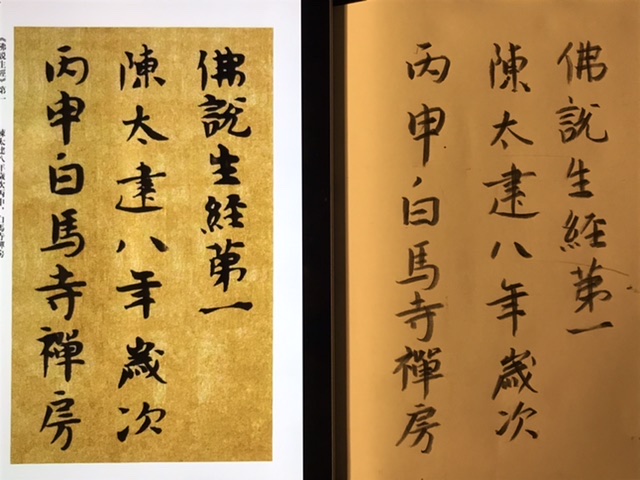 佛說生經第一
陳太建八年歲次
丙申白馬寺禪房
《佛說生經》第一 陳太建八年歲次丙申，白馬寺禪房
佛說生經第一
陳太建八年歲次
丙申白馬寺禪房